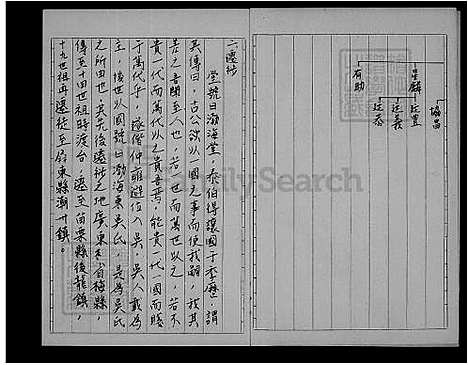 二、遷徙
堂號曰渤海堂，泰伯得讓國于季歷，謂
其傳曰，古公欲以一國之事而使我嗣，我其
苦之，吾聞至人也，若一世而萬世以之，若不
貴一代而萬代以之貴吾焉，能貴一代一國而賤
于萬代乎，遂偕仲雍避位入吳，吳人戴為
主，後世以國號曰渤海東吳氏，是為吳氏
之所由也，其先後遠徙之地廣東省梅縣，
傳至十四世祖時渡台，遷至苗栗縣後龍鎮，
十九世祖再遷徙至屏東縣潮州鎮。
協昌
呈麟
廷豊
廷義
廷恭
有助
FamilySearch